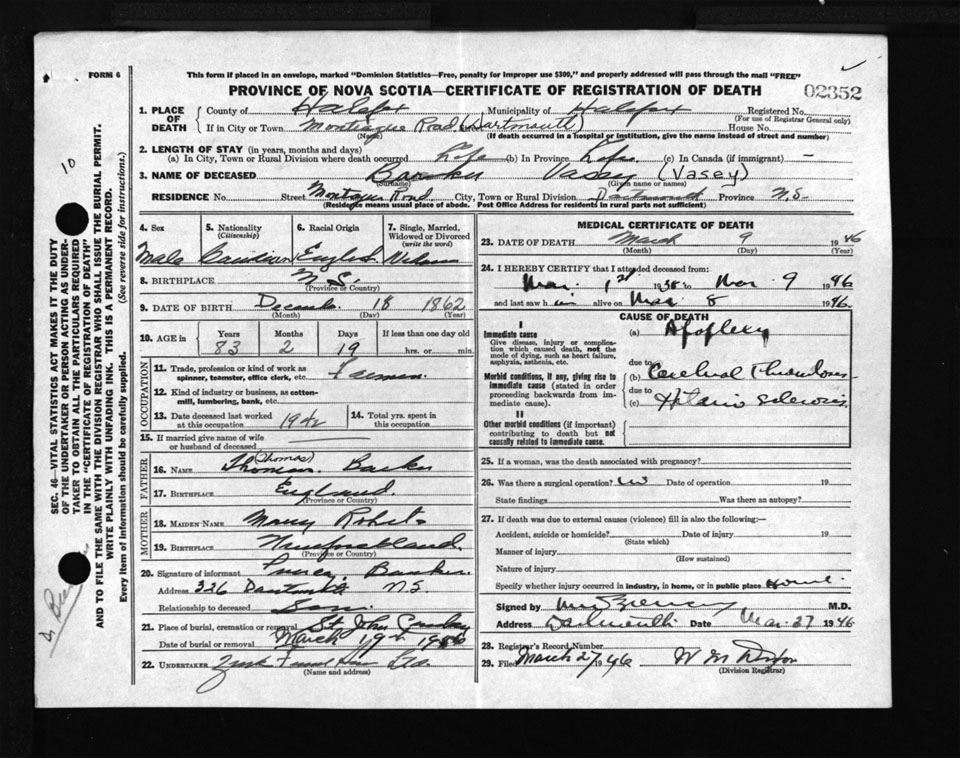 FORM 6
This form if placed in an envelope, marked "Dominion Statistics—Free, penalty for improper use $300," and properly addressed will pass through the mail "FREE"
PROVINCE OF NOVA SCOTIA—CERTIFICATE OF REGISTRATION OF DEATH
02352
1. PLACE OF DEATH
County of Halifax Municipality of Halifax Registered No.
(For use of Registrar General only)
If in City or Town Montague Road (Dartmouth) House No.
(Name) (If death occurred in a hospital or institution, give the name instead of street and number)
2. LENGTH OF STAY (in years, months and days)
(a) In City, Town or Rural Division where death occurred Life (b) In Province Life (c) In Canada (if immigrant) —
3. NAME OF DECEASED Barker Vasey (Vasey)
(Surname) (Given name or names)
RESIDENCE No. Street Montague Road City, Town or Rural Division Dartmouth Province N.S.
(Residence means usual place of abode. Post Office Address for residents in rural parts not sufficient)
4. Sex Male
5. Nationality (Citizenship) Canadian
6. Racial Origin English
7. Single, Married, Widowed or Divorced (write the word)
8. BIRTHPLACE N.S.
(Province or Country)
9. DATE OF BIRTH December 18 1862
(Month) (Day) (Year)
10. AGE in Years Months Days If less than one day old
83 2 19 hrs. or min.
OCCUPATION
11. Trade, profession or kind of work as spinner, teamster, office clerk, etc. Farmer
12. Kind of industry or business, as cotton-mill, lumbering, bank, etc.
13. Date deceased last worked at this occupation 1942
14. Total yrs. spent in this occupation
15. If married give name of wife or husband of deceased
FATHER
16. NAME Thomas (Thomas) Barker
17. BIRTHPLACE England
(Province or Country)
MOTHER
18. MAIDEN NAME Mary Roberts
19. BIRTHPLACE Newfoundland
(Province or Country)
20. Signature of informant Barker
Address 326 Dartmouth N.S.
Relationship to deceased Son
21. Place of burial, cremation or removal St. John
Date of burial or removal March
22. UNDERTAKER Funeral Home Ltd
(Name and address)
MEDICAL CERTIFICATE OF DEATH
23. DATE OF DEATH March 9 1946
(Month) (Day) (Year)
24. I HEREBY CERTIFY that I attended deceased from:
Mar. 1st 1938 to Mar 9 1946
and last saw him alive on Mar 8 1946.
CAUSE OF DEATH
I
Immediate cause
Give disease, injury or complication which caused death, not the mode of dying, such as heart failure, asphyxia, asthenia, etc.
(a) Apoplexy
due to
Morbid conditions, if any, giving rise to immediate cause (stated in order proceeding backwards from immediate cause).
(b) Cerebral Thrombosis
due to
(c)
II
Other morbid conditions (if important) contributing to death but not causally related to immediate cause.
25. If a woman, was the death associated with pregnancy?
26. Was there a surgical operation? Date of operation 19
State findings Was there an autopsy?
27. If death was due to external causes (violence) fill in also the following:—
Accident, suicide or homicide? Date of injury 19
(State which)
Manner of injury
(How sustained)
Nature of injury
Specify whether injury occurred in industry, in home, or in public place Home
Signed by M.D.
Address Dartmouth Date Mar. 27 1946
28. Registrar's Record Number
29. Filed March 27 1946
(Division Registrar)
SEC. 46—VITAL STATISTICS ACT MAKES IT THE DUTY
OF THE UNDERTAKER OR PERSON ACTING AS UNDERTAKER TO OBTAIN ALL THE PARTICULARS REQUIRED
IN THE "CERTIFICATE OF REGISTRATION OF DEATH"
AND TO FILE THE SAME WITH THE DIVISION REGISTRAR WHO SHALL ISSUE THE BURIAL PERMIT.
WRITE PLAINLY WITH UNFADING INK. THIS IS A PERMANENT RECORD.
Every item of information should be carefully supplied. (See reverse side for instructions.)
10